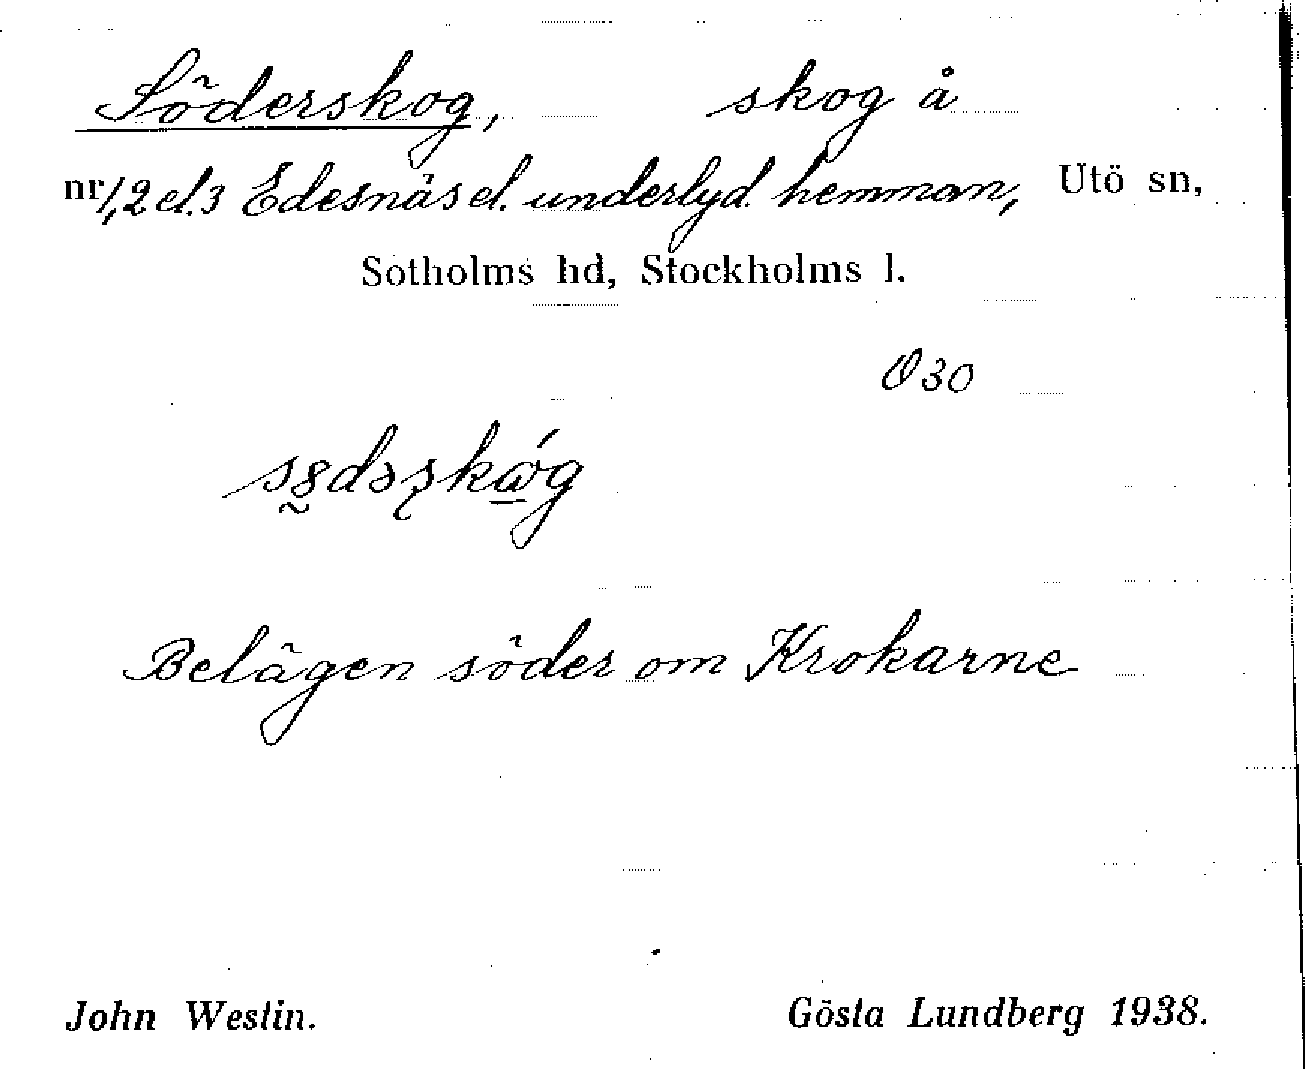 Söderskog, skog å
nr 1, 2 el. 3 Edesnäs el. underlyd. hemman, Utö sn,
Sotholms hd, Stockholms l.
Ö 30
Belägen söder om Krokarne
John Westin. Gösta Lundberg 1938.